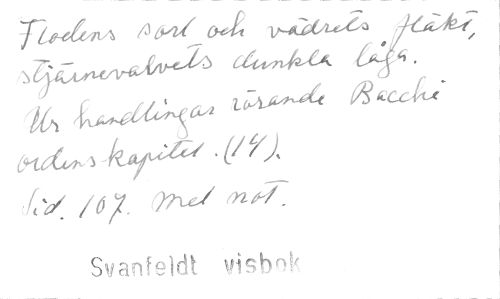 Flodens sorl och vädrets fläkt,
stjärnevalvets dunkla låga.
Ur handlingar rörande Bacchi
ordenskapitel. (14).
Sid. 107. Mel not.
Svanfeldt visbok